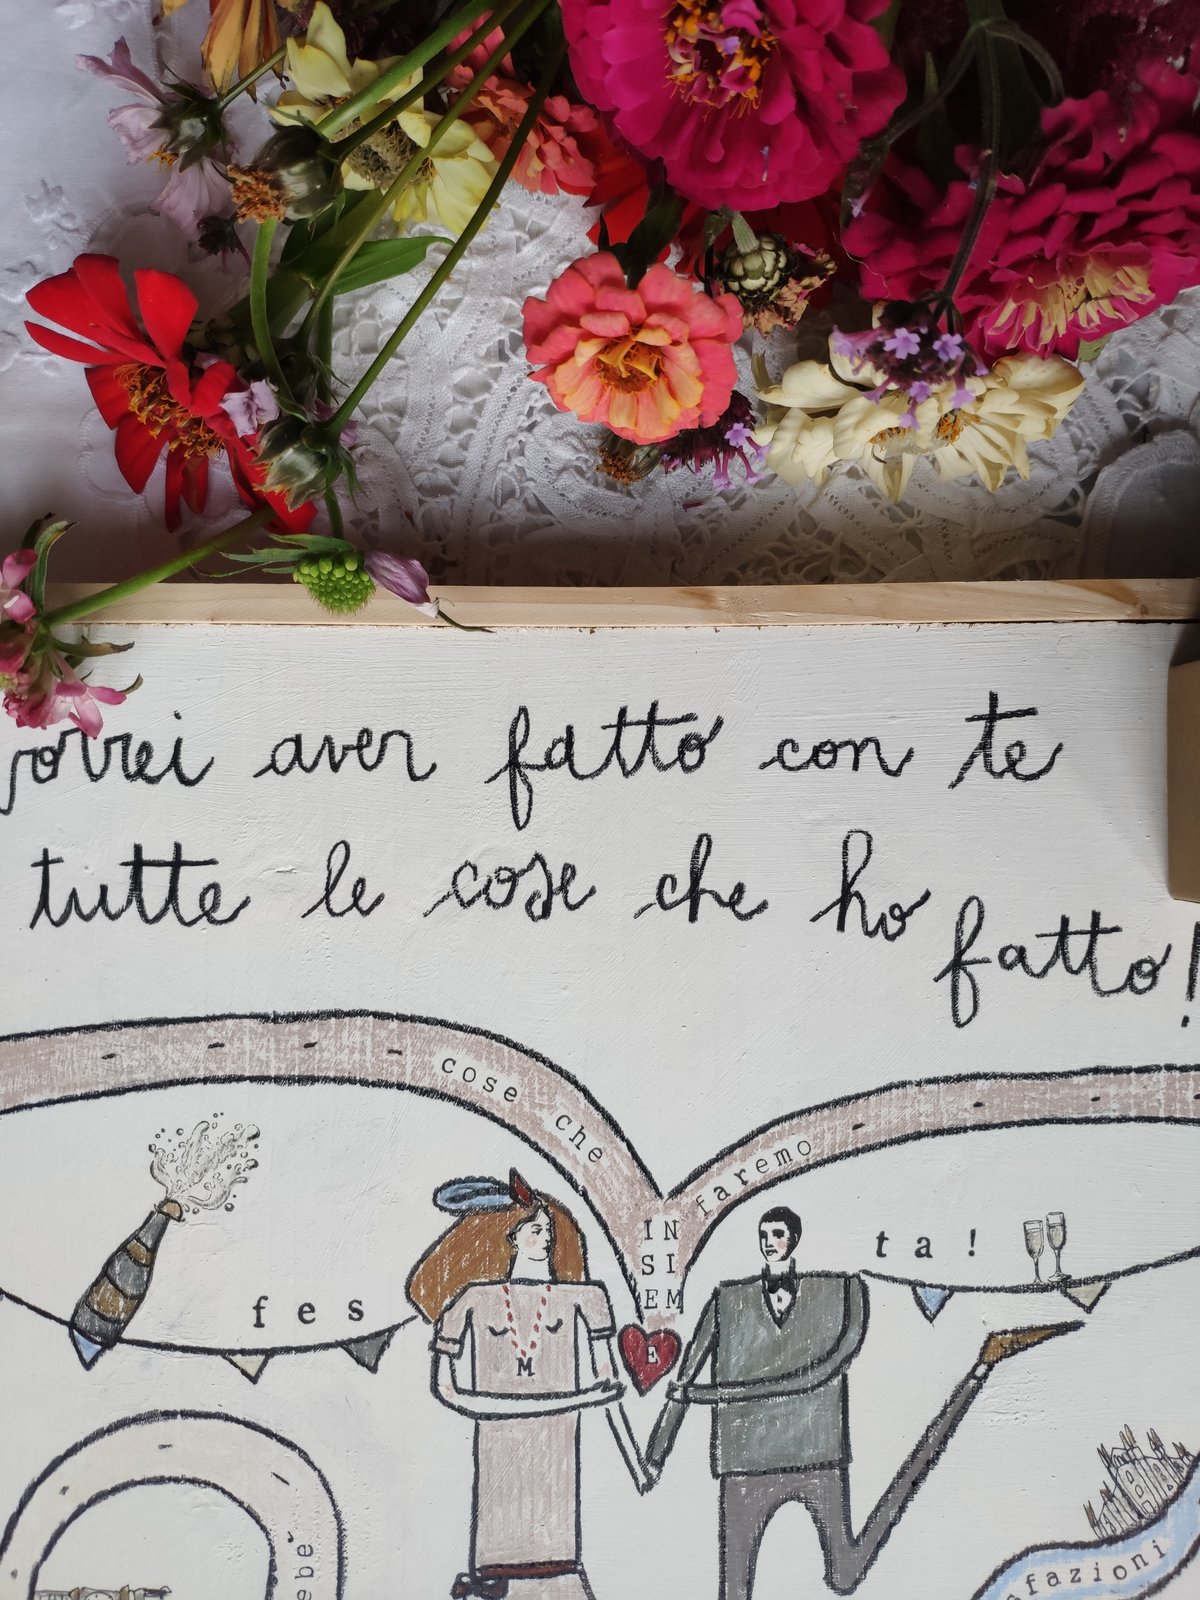 vorrei aver fatto con te
tutte le cose che ho
fatto!
cose che
faremo
IN
SI
EM
E
fes
ta!
M
sfazioni